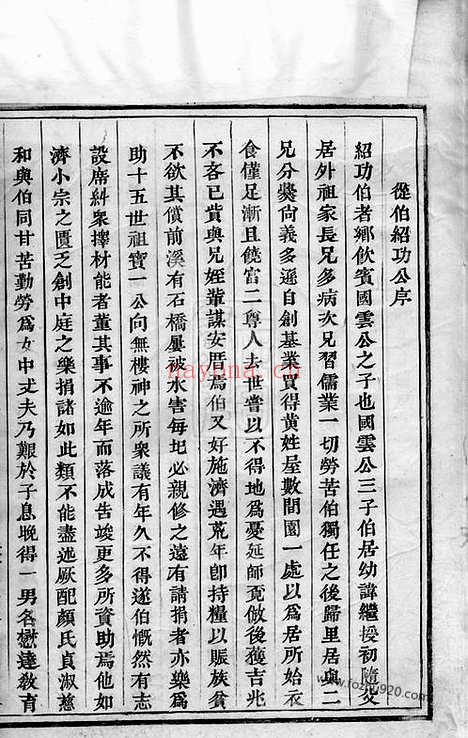 從伯紹功公序
紹功伯者鄉飲賓國雲公之子也國雲公三子伯居幼諱繼操初隨父
居外祖家長兄多病次兄習儒業一切勞苦伯獨任之後歸里居與二
兄分爨向義多遜自創基業買得黃姓屋數間園一處以為居所始衣
食僅足漸且饒富二尊人去世嘗以不得地為憂延師覓倣後獲吉兆
不吝己貲與兄姪輩謀安厝焉伯又好施濟遇荒年卽持糧以賑族貧
不欲其償前溪有石橋屢被水害每圯必親修之遠有請捐者亦樂為
助十五世祖寶一公向無棲神之所衆議有年久不得遂伯慨然有志
設席糾衆擇材能者董其事不逾年而落成告竣更多所資助焉他如
濟小宗之匱乏創中庭之樂捐諸如此類不能盡述厥配顏氏貞淑慈
和與伯同甘苦勤勞為女中丈夫乃艱於子息晚得一男名懋達教育
nayona.cn
www.fozhu920.com